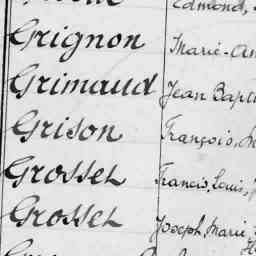 Edmond,
Grignon Marie-An
Grimaud Jean Bapti
Grison François,
Grosset Francis, Louis,
Grosset Joseph, Marie